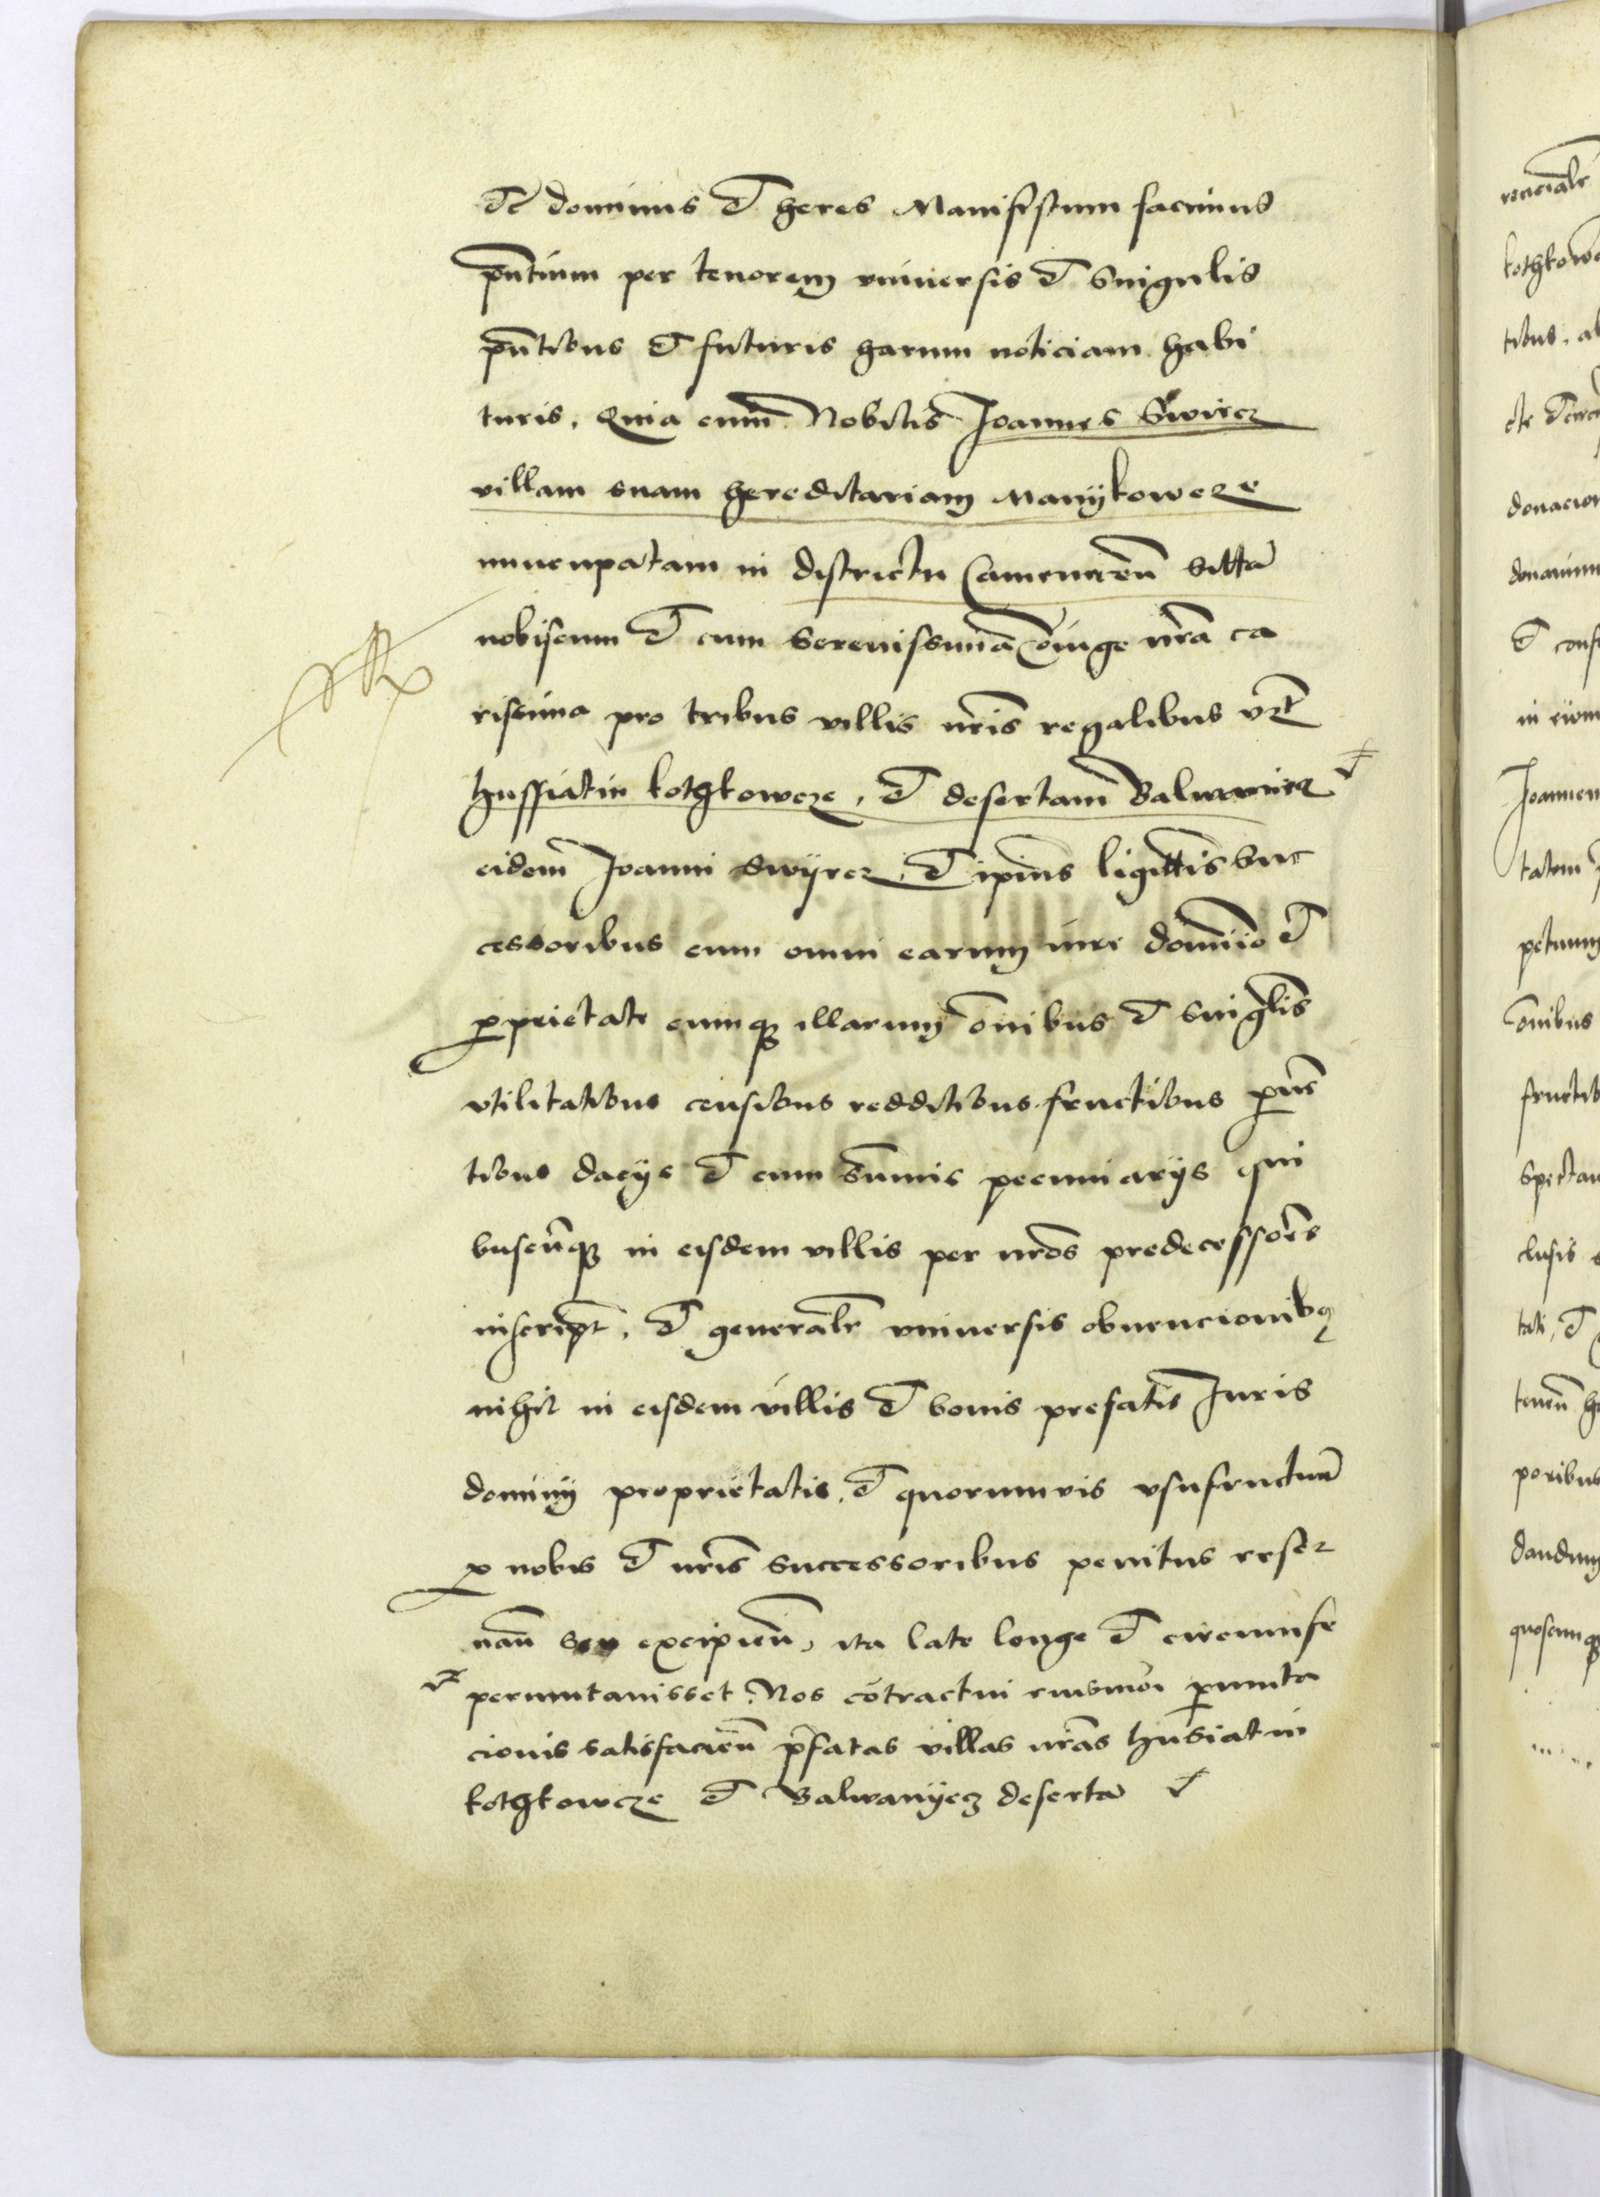 Etc dominus et heres Manifestum facimus
pñtium per tenorem vniuersis et singulis
pñtibus et futuris harum noticiam habi
turis. Quia cum Nobilis Joannes Swircz
villam suam hereditariam Manijkowcze
nuncupatam in districtu Camenecen̄ sittā
nobiscum et cum Serenissima cōiuge nrā ca
rissima pro tribus villis nr̄is regalibus vz̄t
hussiatin kothkowcze, et desertam Balwanicz
eidem Joanni Swijrcz, et ipius ligittis suc
cessoribus cum omni earum iure dominio et
pprietate cumq illarum om̄ibus et singlis
vtilitatibus censibus redditibus fructibus puē
tibus dacijs et cum sum̄is pecuniarijs qui
buscūq in eisdem villis per nr̄os predecessores
inscript. et generalr vniuersis obuencionibq
nihil in eisdem villis et bonis prefatis Juris
dominij proprietatis et quorumuis vsufructuū
p nobis et nr̄is successoribus penitus reser
uan̄ seu excipien̄, ita late longe et circumfe
permutauisset. Nos cōtractui eiusmōi pmuta
cionis satisfacien̄ p̄fatas villas nr̄as husiatin
kothkowcze et Balwanijecz desertā
vocialr
kothkowc
tibus. al
donacion
donauimu
et conf
in eium
Joannem
tatem
petuum
om̄ibus
fructib
spectan
clusis
tali, et
tenen̄ h
poribus
dandum
quoscumq